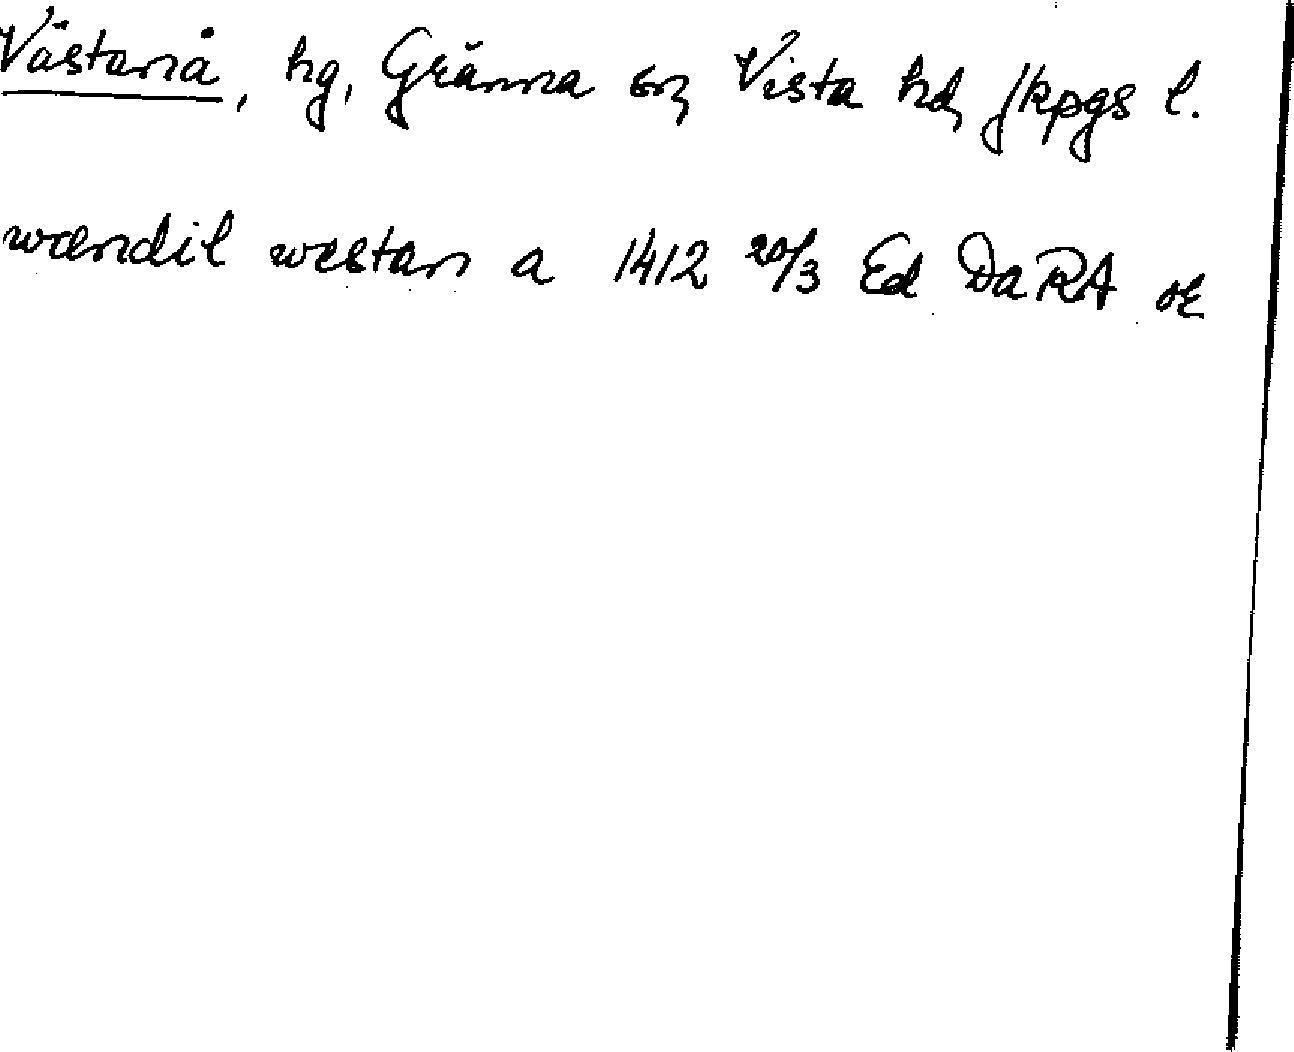 Västanå, hg, Gränna sn, Vista hd, Jkpgs l.
wændil wæstan a 1412 20/3 Ed DaRA or